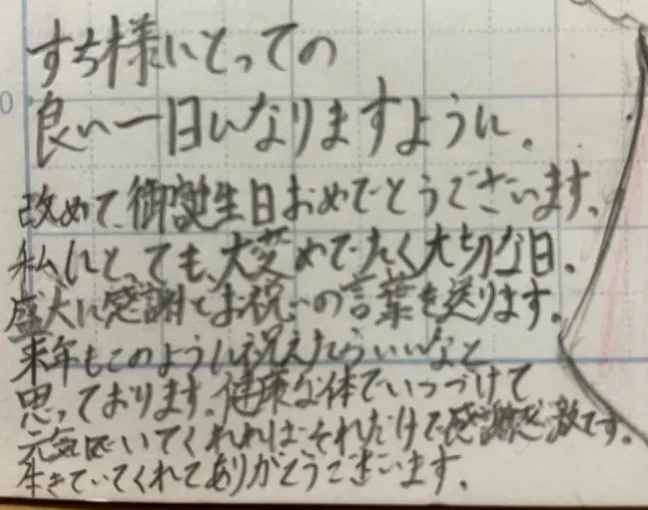 すち様にとっての
良い一日になりますように。
改めて、御誕生日おめでとうございます。
私にとっても、大変めでたく大切な日。
盛大に感謝とお祝いの言葉を送ります。
来年もこのように祝えたらいいなと
思っております。健康な体でいつづけて
元気でいてくれれば、それだけで感謝感激です。
生きていてくれてありがとうございます。
0